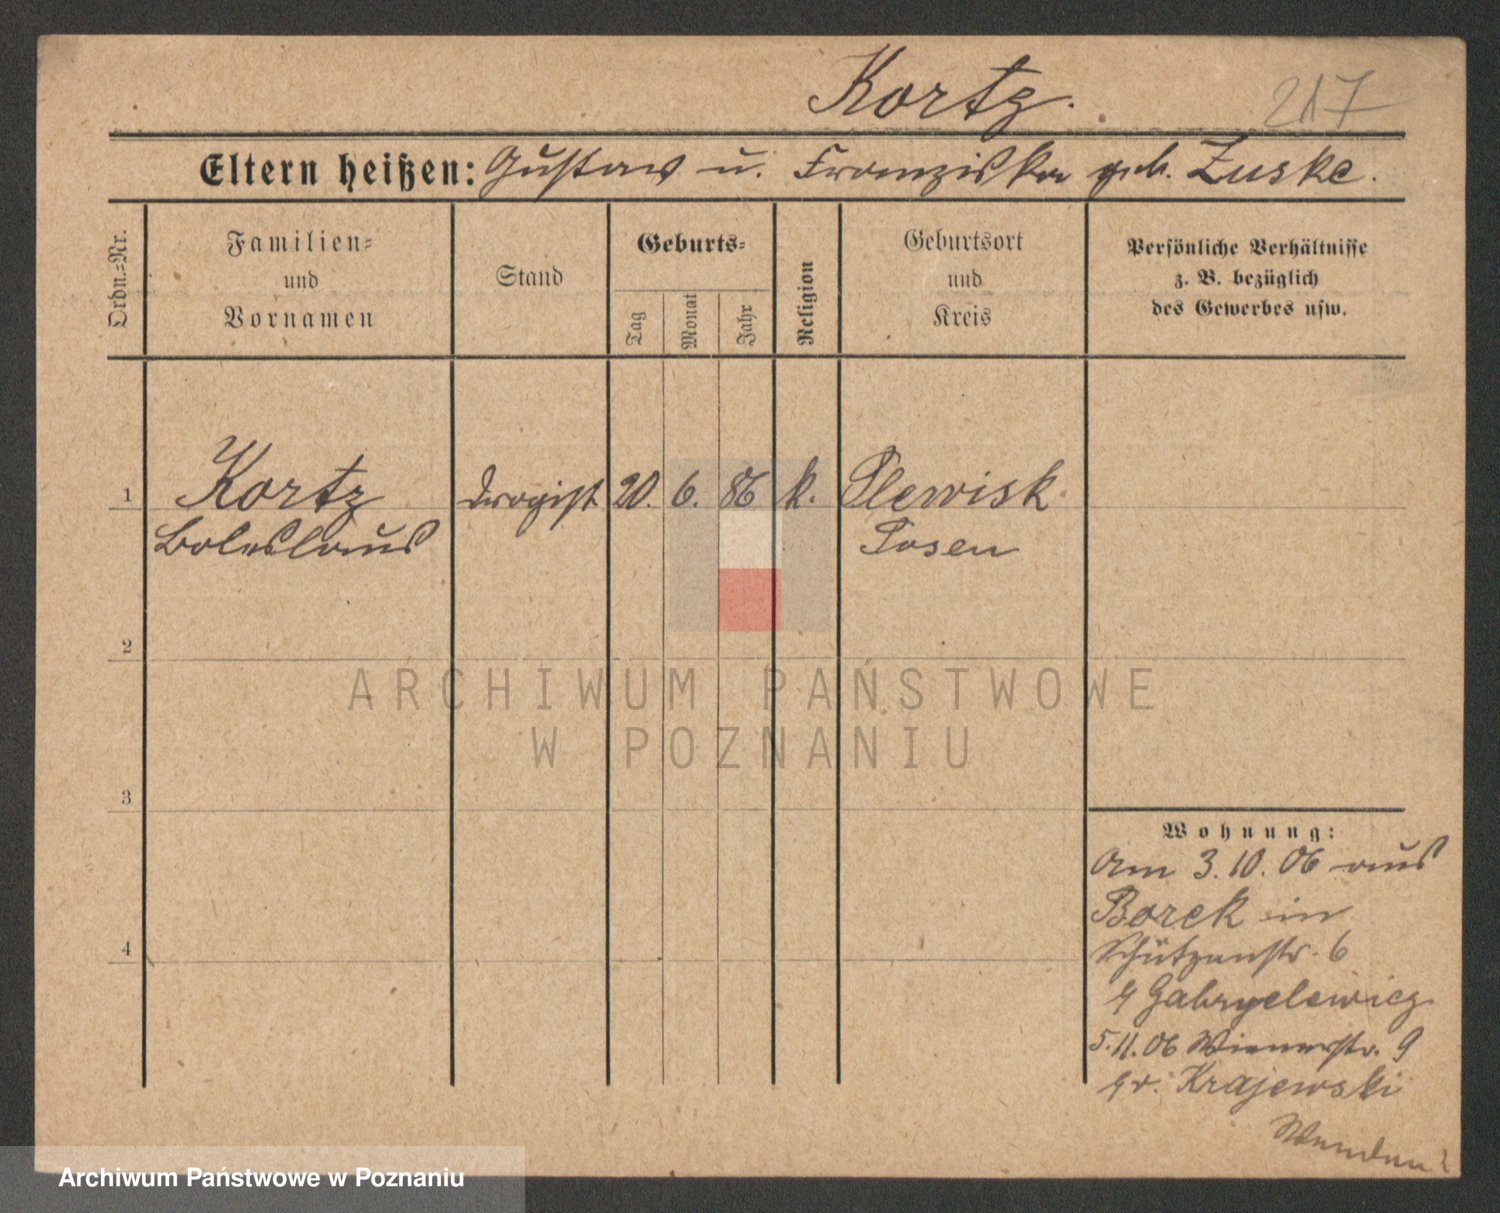 Kortz.
217
Eltern heißen: Gustav u. Franziska geb. Zuske.
Ordn.=Nr.
Familien=
und
Vornamen
Stand
Geburts=
Tag
Monat
Jahr
Religion
Geburtsort
und
Kreis
Persönliche Verhältnisse
z. B. bezüglich
des Gewerbes usw.
1 Kortz Drogist 20. 6. 86 k. Plewisk
Boleslaus Posen
2
3
4
Wohnung:
Am 3.10.06 aus
Borek in
Schützenstr. 6
Gabryelewicz
5.11.06 Wienerstr. 9
Krajewski
Wenden
ARCHIWUM PAŃSTWOWE
W POZNANIU
Archiwum Państwowe w Poznaniu